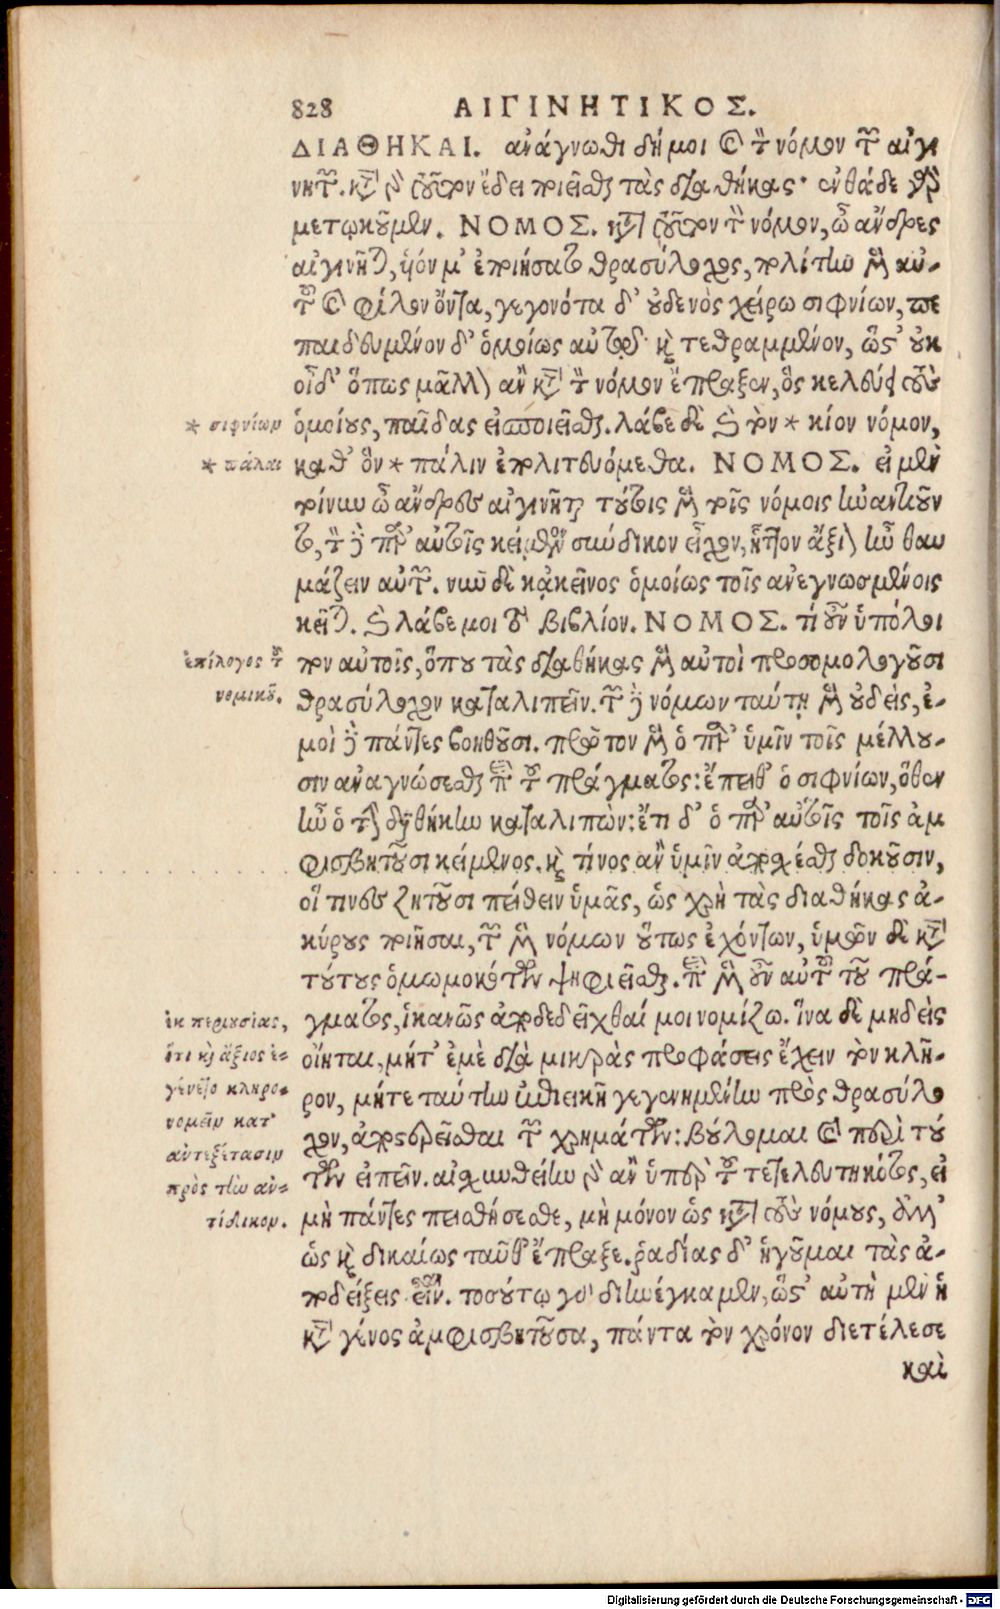 828 ΑΙΓΙΝΗΤΙΚΟΣ.
ΔΙΑΘΗΚΑΙ. ἀνάγνωθι δή μοι καὶ τὸν νόμον τῶν αἰγι
νητῶν. κατὰ γὰρ τοῦτον ἔδει ποιεῖσθαι τὰς διαθήκας· ἐνθάδε γὰρ
μετῳκοῦμεν. ΝΟΜΟΣ. κατὰ τοῦτον τὸν νόμον, ὦ ἄνδρες
αἰγινῆται, υἱόν μ' ἐποιήσατο θρασύλοχος, πολίτην μὲν αὐ-
τοῦ καὶ φίλον ὄντα, γεγονότα δ' οὐδενὸς χεῖρω σιφνίων, πε
παιδευμένον δ' ὁμοίως αὐτῷ καὶ τεθραμμένον, ὥστ' οὐκ
οἶδ' ὅπως μᾶλλον ἂν κατὰ τὸν νόμον ἔπραξεν, ὃς κελεύει τοὺς
* σιφνίων
ὁμοίους, παῖδας εἰσποιεῖσθαι. λάβε δὲ καὶ τὸν * κίον νόμον,
* πάλαι
καθ' ὃν * πάλιν ἐπολιτευόμεθα. ΝΟΜΟΣ. εἰ μὲν
τοίνυν ὦ ἄνδρες αἰγινῆται τούτοις μὲν τοῖς νόμοις ἠναντιοῦν
το, τὸν δὲ παρ' αὐτοῖς κείμενον σύνδικον εἶχον, ἧττον ἄξιον ἦν θαυ
μάζειν αὐτῶν. νῦν δὲ κἀκεῖνος ὁμοίως τοῖς ἀνεγνωσμένοις
κεῖται. καὶ λάβε μοι τὸ βιβλίον. ΝΟΜΟΣ. τί οὖν ὑπόλοι
ἐπίλογος τοῦ
νομικοῦ.
πον αὐτοῖς, ὅπου τὰς διαθήκας μὲν αὐτοὶ προσομολογοῦσι
θρασύλοχον καταλιπεῖν. τῶν δὲ νόμων ταύτῃ μὲν οὐδεὶς, ἐ-
μοὶ δὲ πάντες βοηθοῦσι. πρῶτον μὲν ὁ παρ' ὑμῖν τοῖς μέλλου-
σιν ἀναγνώσεσθαι περὶ τοῦ πράγματος: ἔπειθ' ὁ σιφνίων, ὅθεν
ἦν ὁ τὴν διαθήκην καταλιπών: ἔτι δ' ὁ παρ' αὐτοῖς τοῖς ἀμ
φισβητοῦσι κείμενος. καὶ τίνος ἂν ὑμῖν ἀποσχέσθαι δοκοῦσιν,
οἵ τινες ζητοῦσι πείθειν ὑμᾶς, ὡς χρὴ τὰς διαθήκας ἀ-
κύρους ποιῆσαι, τῶν μὲν νόμων οὕτως ἐχόντων, ὑμῶν δὲ κατὰ
τούτους ὁμωμοκότων ψηφιεῖσθαι. περὶ μὲν οὖν αὐτοῦ τοῦ πρά-
ἐκ περιουσίας,
ὅτι καὶ ἄξιος ἐ-
γένετο κληρο-
νομεῖν κατ'
ἀντεξέτασιν
πρὸς τὴν ἀν-
τίδικον.
γματος, ἱκανῶς ἀποδεδεῖχθαί μοι νομίζω. ἵνα δὲ μηδεὶς
οἴηται, μήτ' ἐμὲ διὰ μικρὰς προφάσεις ἔχειν τὸν κλῆ-
ρον, μήτε ταύτην ἐπιεικῆ γεγενημένην πρὸς θρασύλο
χον, ἀποστερεῖσθαι τῶν χρημάτων: βούλομαι καὶ περὶ τού
των εἰπεῖν. αἰσχυνθείην γὰρ ἂν ὑπὲρ τοῦ τετελευτηκότος, εἰ
μὴ πάντες πεισθήσεσθε, μὴ μόνον ὡς κατὰ τοὺς νόμους, ἀλλ'
ὡς καὶ δικαίως ταῦθ' ἔπραξε. ῥαδίας δ' ἡγοῦμαι τὰς ἀ-
ποδείξεις εἶναι. τοσούτῳ γὰρ διηνέγκαμεν, ὥστ' αὐτὴ μὲν ἡ
κατὰ γένος ἀμφισβητοῦσα, πάντα τὸν χρόνον διετέλεσε
καὶ
Digitalisierung gefördert durch die Deutsche Forschungsgemeinschaft - DFG